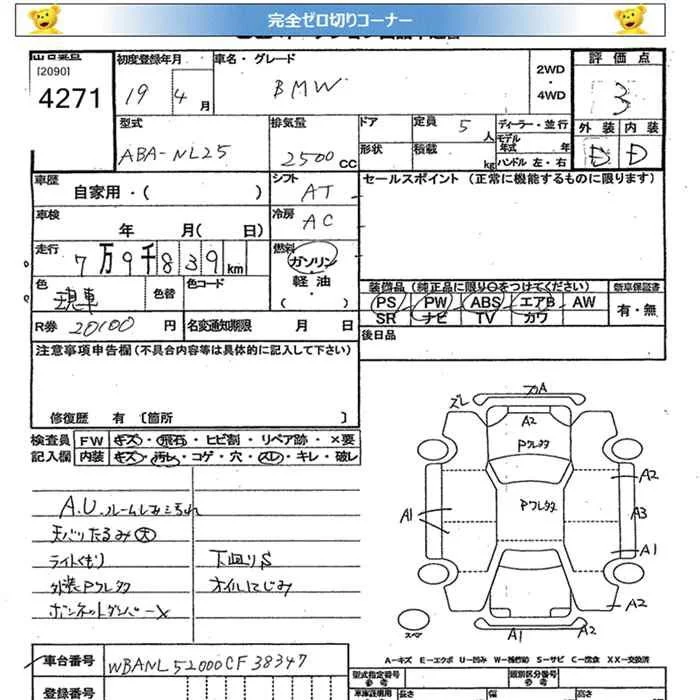 完全ゼロ切りコーナー
[2090]
4271
初度登録年月
19 4月
車名・グレード
BMW
2WD
・
4WD
評価点
3
外装 内装
D D
型式
ABA-NL25
排気量
2500CC
ドア
形状
定員 5人
積載 kg
ディーラー・並行
モデル年式 年
ハンドル 左・右
車歴
自家用・( )
シフト
AT
セールスポイント (正常に機能するものに限ります)
車検
年 月( 日)
冷房
AC
走行
7万9千839km
燃料
ガソリン
・
軽油
・
( )
色
現車
色替
色コード
装備品 (純正品に限り○をつけてください)
PS PW ABS エアB AW
SR ナビ TV カワ
新車保証書
有・無
R券 20100円
名変通知期限 月 日
後日品
注意事項申告欄(不具合内容等は具体的に記入して下さい)
修復歴 有 [箇所 ]
検査員 FW キズ・飛石・ヒビ割・リペア跡・×要
記入欄 内装 キズ・汚レ・コゲ・穴・スレ・キレ・破レ
A.U.ルームしみ.こすれ
天バリたるみ大
ライトくもり
外装Pワレタタ
ボンネットダンパーX
下廻りS
オイルにじみ
ズレ
プカA
A2
Pワレタタ
Pワレタタ
A1
A2
A3
A1
A2
A1
A2
スペア
車台番号 WBANL52000CF38347
登録番号
A-キズ E-エクボ U-凹み W-補修跡 S-サビ C-腐食 XX-交換済
型式指定番号
参考
類別区分番号
参考
車庫証明用 長さ 幅 高さ